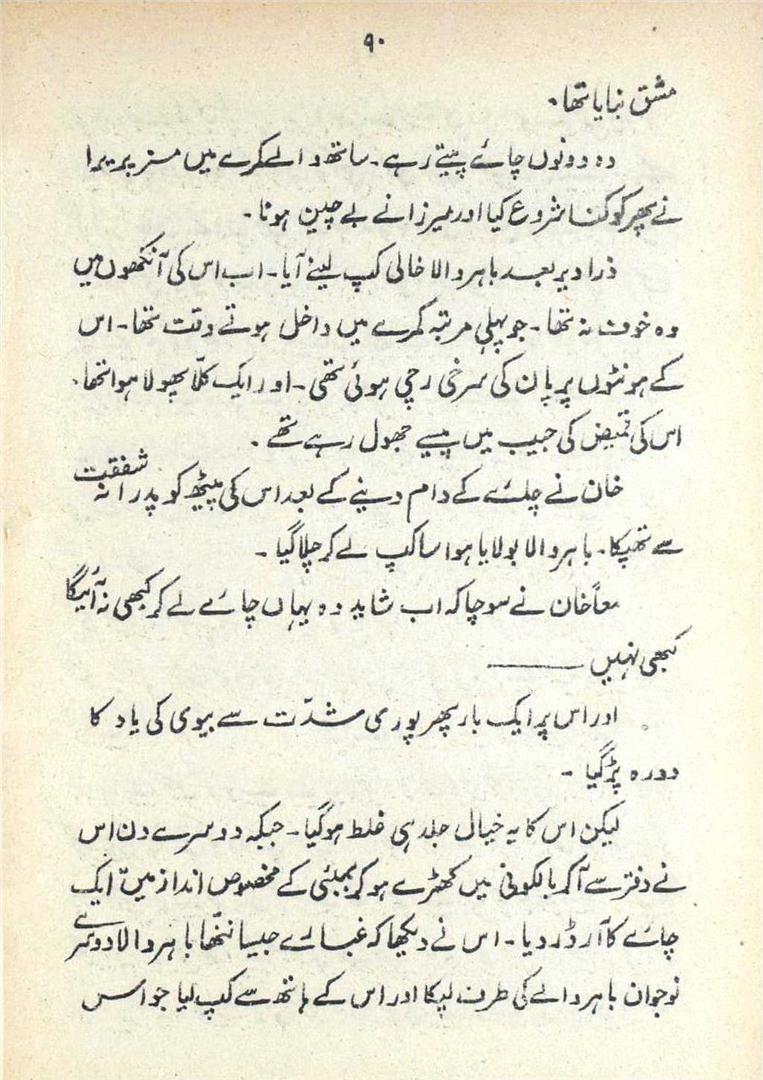 ۹۰
مشق بنایا تھا۔
وہ دونوں چائے پیتے رہے۔ ساتھ والے کمرے میں مسز پریرا
نے پھر کوکنا شروع کیا اور میرزا نے بے چین ہونا۔
ذرا دیر بعد باہر والا خالی کپ لینے آیا۔ اب اس کی آنکھوں میں
وہ خوف نہ تھا۔ جو پہلی مرتبہ کمرے میں داخل ہوتے وقت تھا۔ اس
کے ہونٹوں پر پان کی سرخی رچی ہوئی تھی۔ اور ایک کلّا پھولا ہوا تھا۔
اس کی قمیض کی جیب میں پیسے جھول رہے تھے۔
خان نے چائے کے دام دینے کے بعد اس کی پیٹھ کو پدرانہ شفقت
سے تھپکا۔ باہر والا بولایا ہوا سا کپ لے کر چلا گیا۔
معاً خان نے سوچا کہ اب شاید وہ یہاں چائے لے کر کبھی نہ آئیگا
کبھی نہیں ———
اور اس پر ایک بار پھر پوری شدّت سے بیوی کی یاد کا
دورہ پڑ گیا۔
لیکن اس کا یہ خیال جلد ہی غلط ہو گیا۔ جبکہ دوسرے دن اس
نے دفتر سے آ کر بالکونی میں کھڑے ہو کر بمبئی کے مخصوص انداز میں ایک
چائے کا آرڈر دیا۔ اس نے دیکھا کہ غبارے جیسا ننّھا باہر والا دوسرے
نوجوان باہر والے کی طرف لپکا اور اس کے ہاتھ سے کپ لیا جو اس